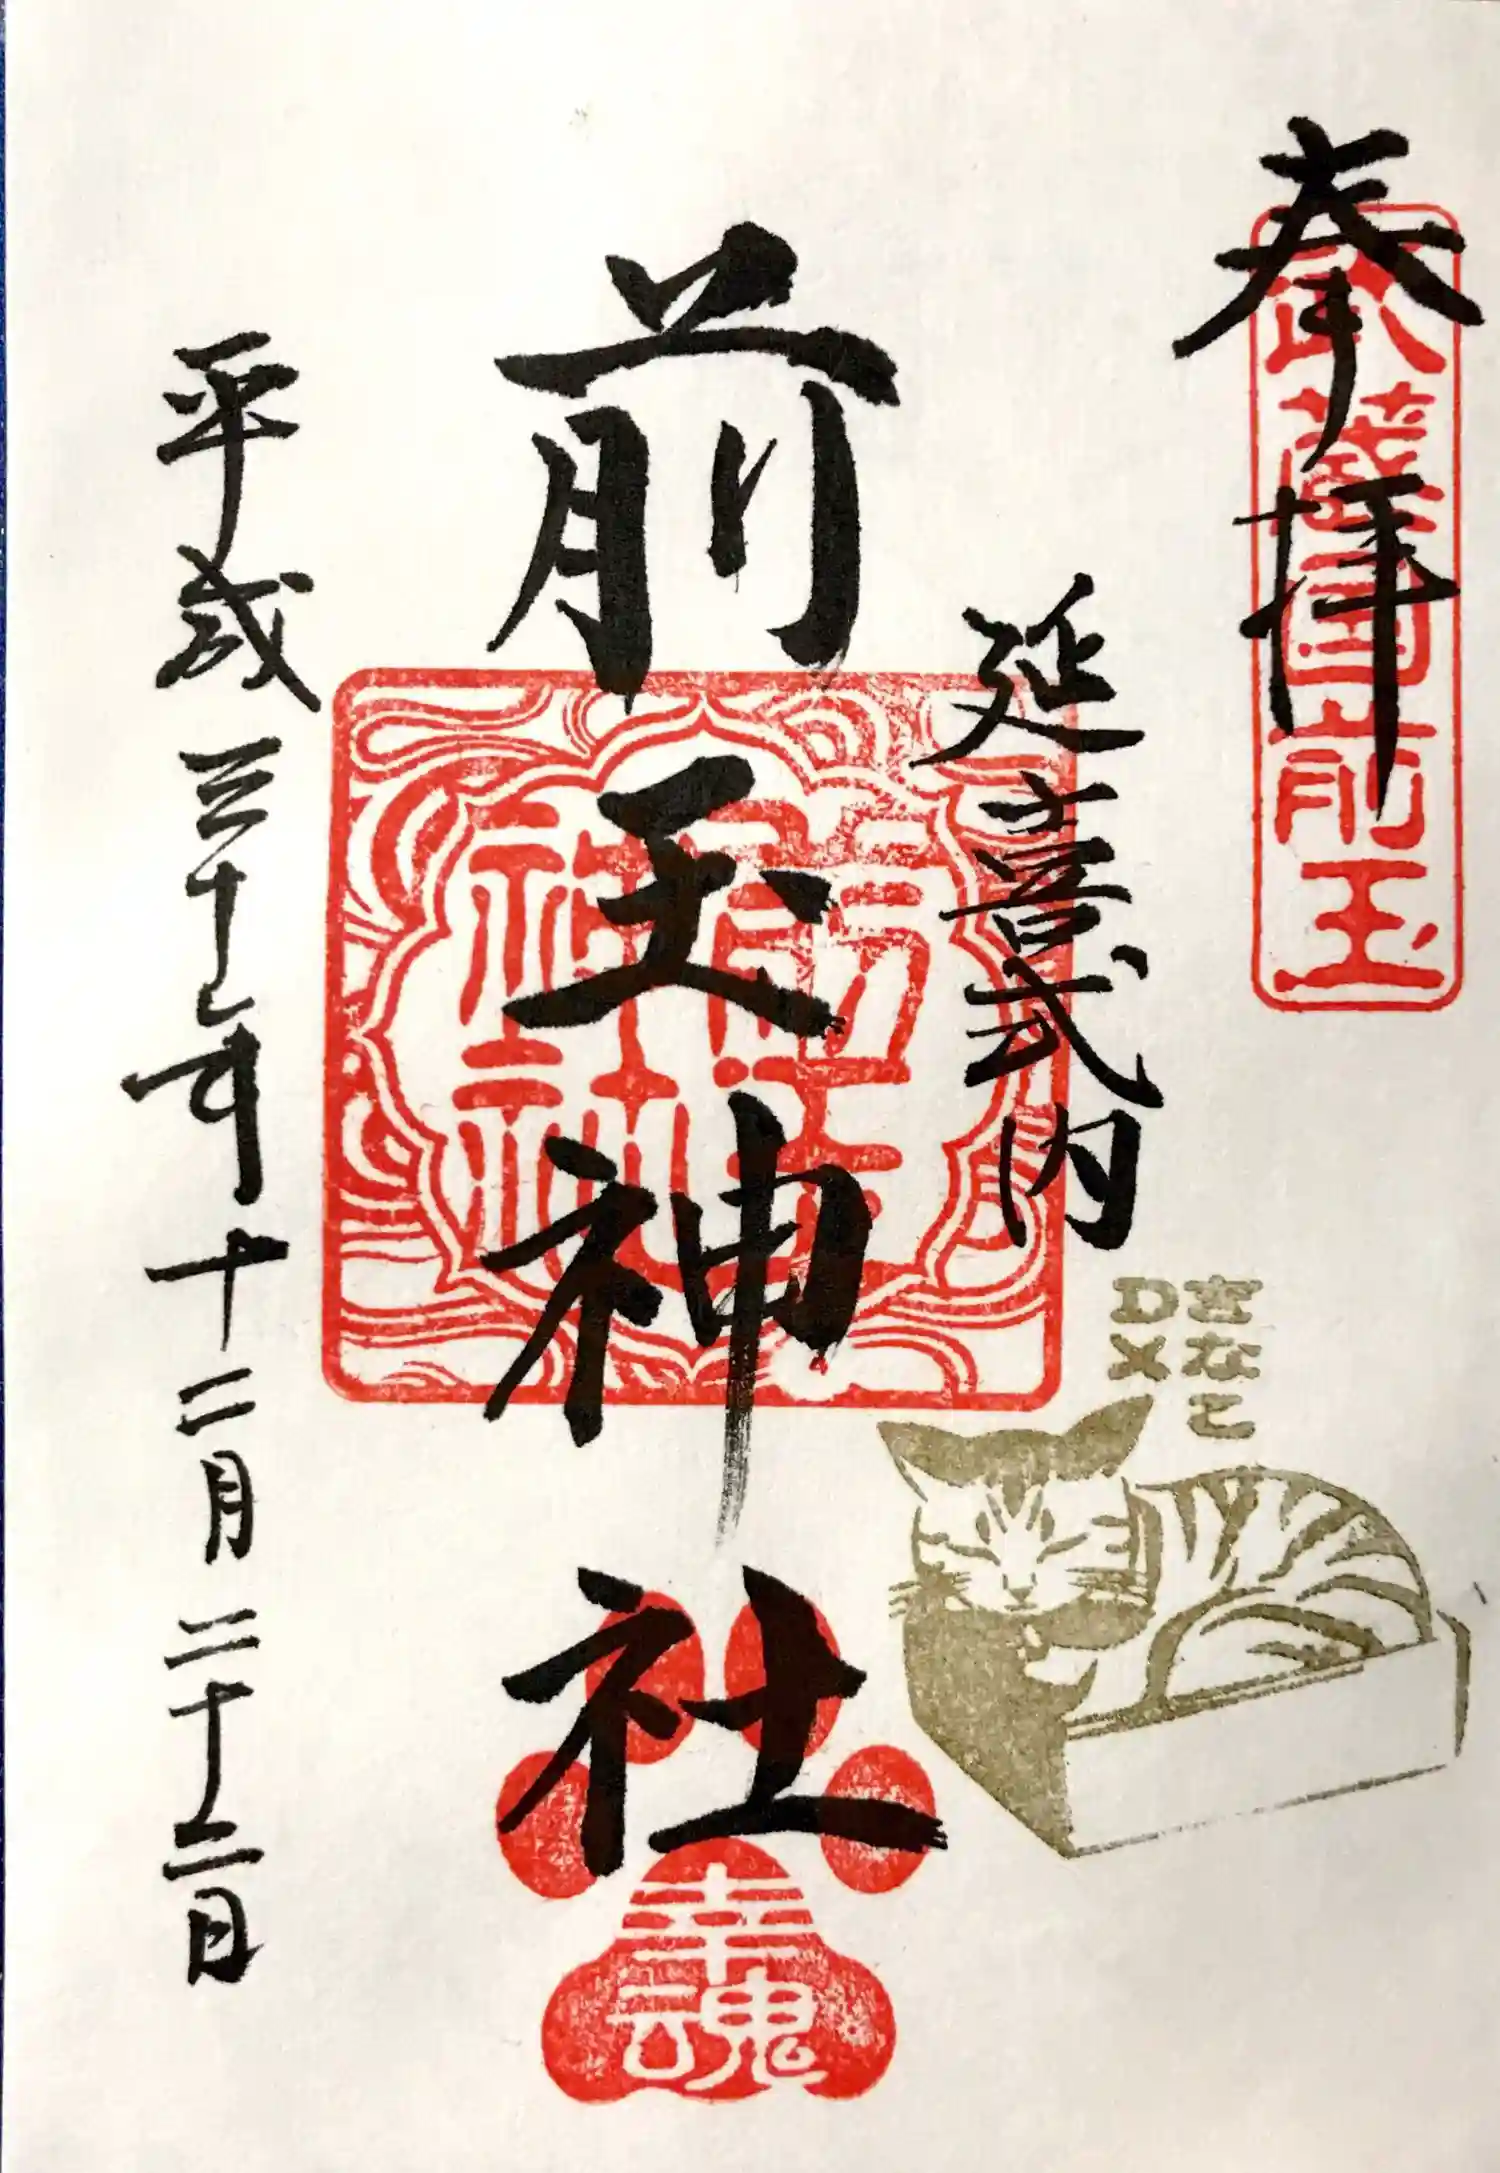 奉拝
武蔵国前玉
延喜式内
きなこ
DX
前玉神社
前玉神社
幸魂
平成三十年十二月二十二日